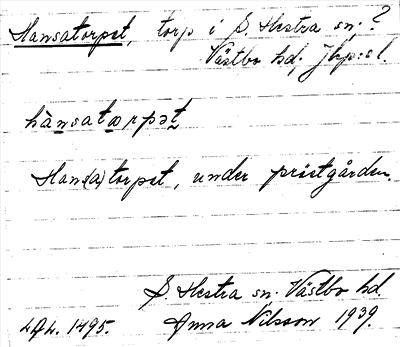 Hansatorpet, torp i S. Hestra sn.?
Västbo hd, Jkp:s l.
hànsatωrpət
Hans(a)torpet, under prästgården.
S. Hestra sn. Västbo hd.
LAL. 1495. Anna Nilsson 1939.